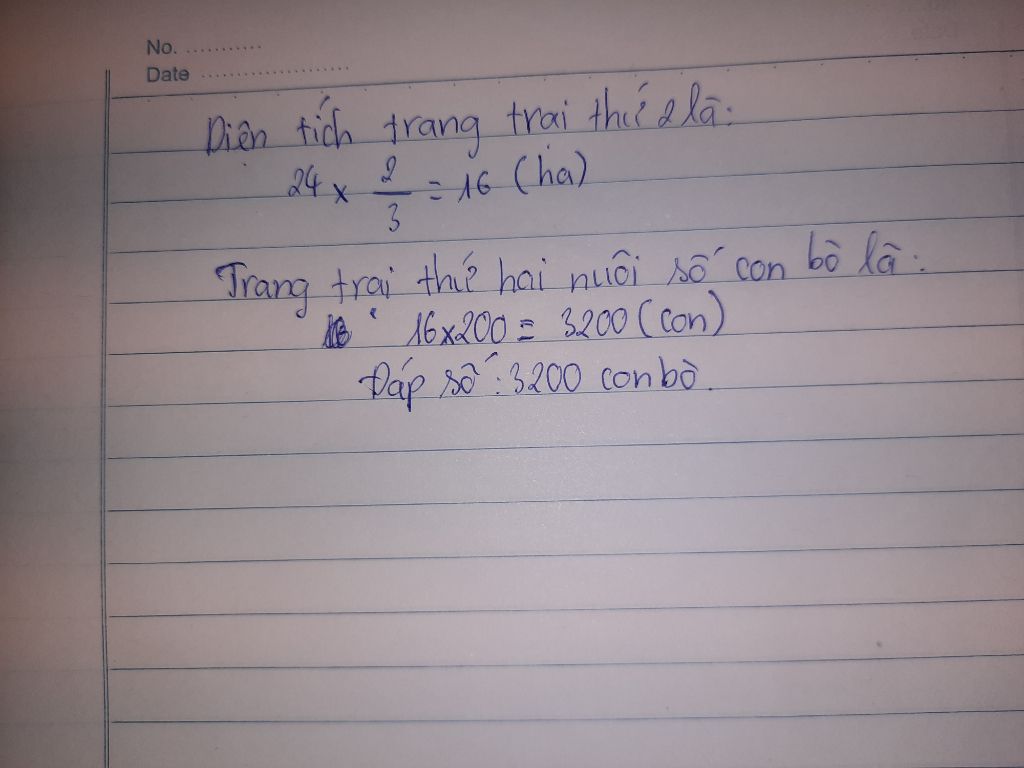 No. ...........
Date ......................
Diện tích trang trại thứ 2 là:
24 x 2/3 = 16 (ha)
Trang trại thứ hai nuôi số con bò là:
16x200 = 3200 (con)
Đáp số: 3200 con bò.